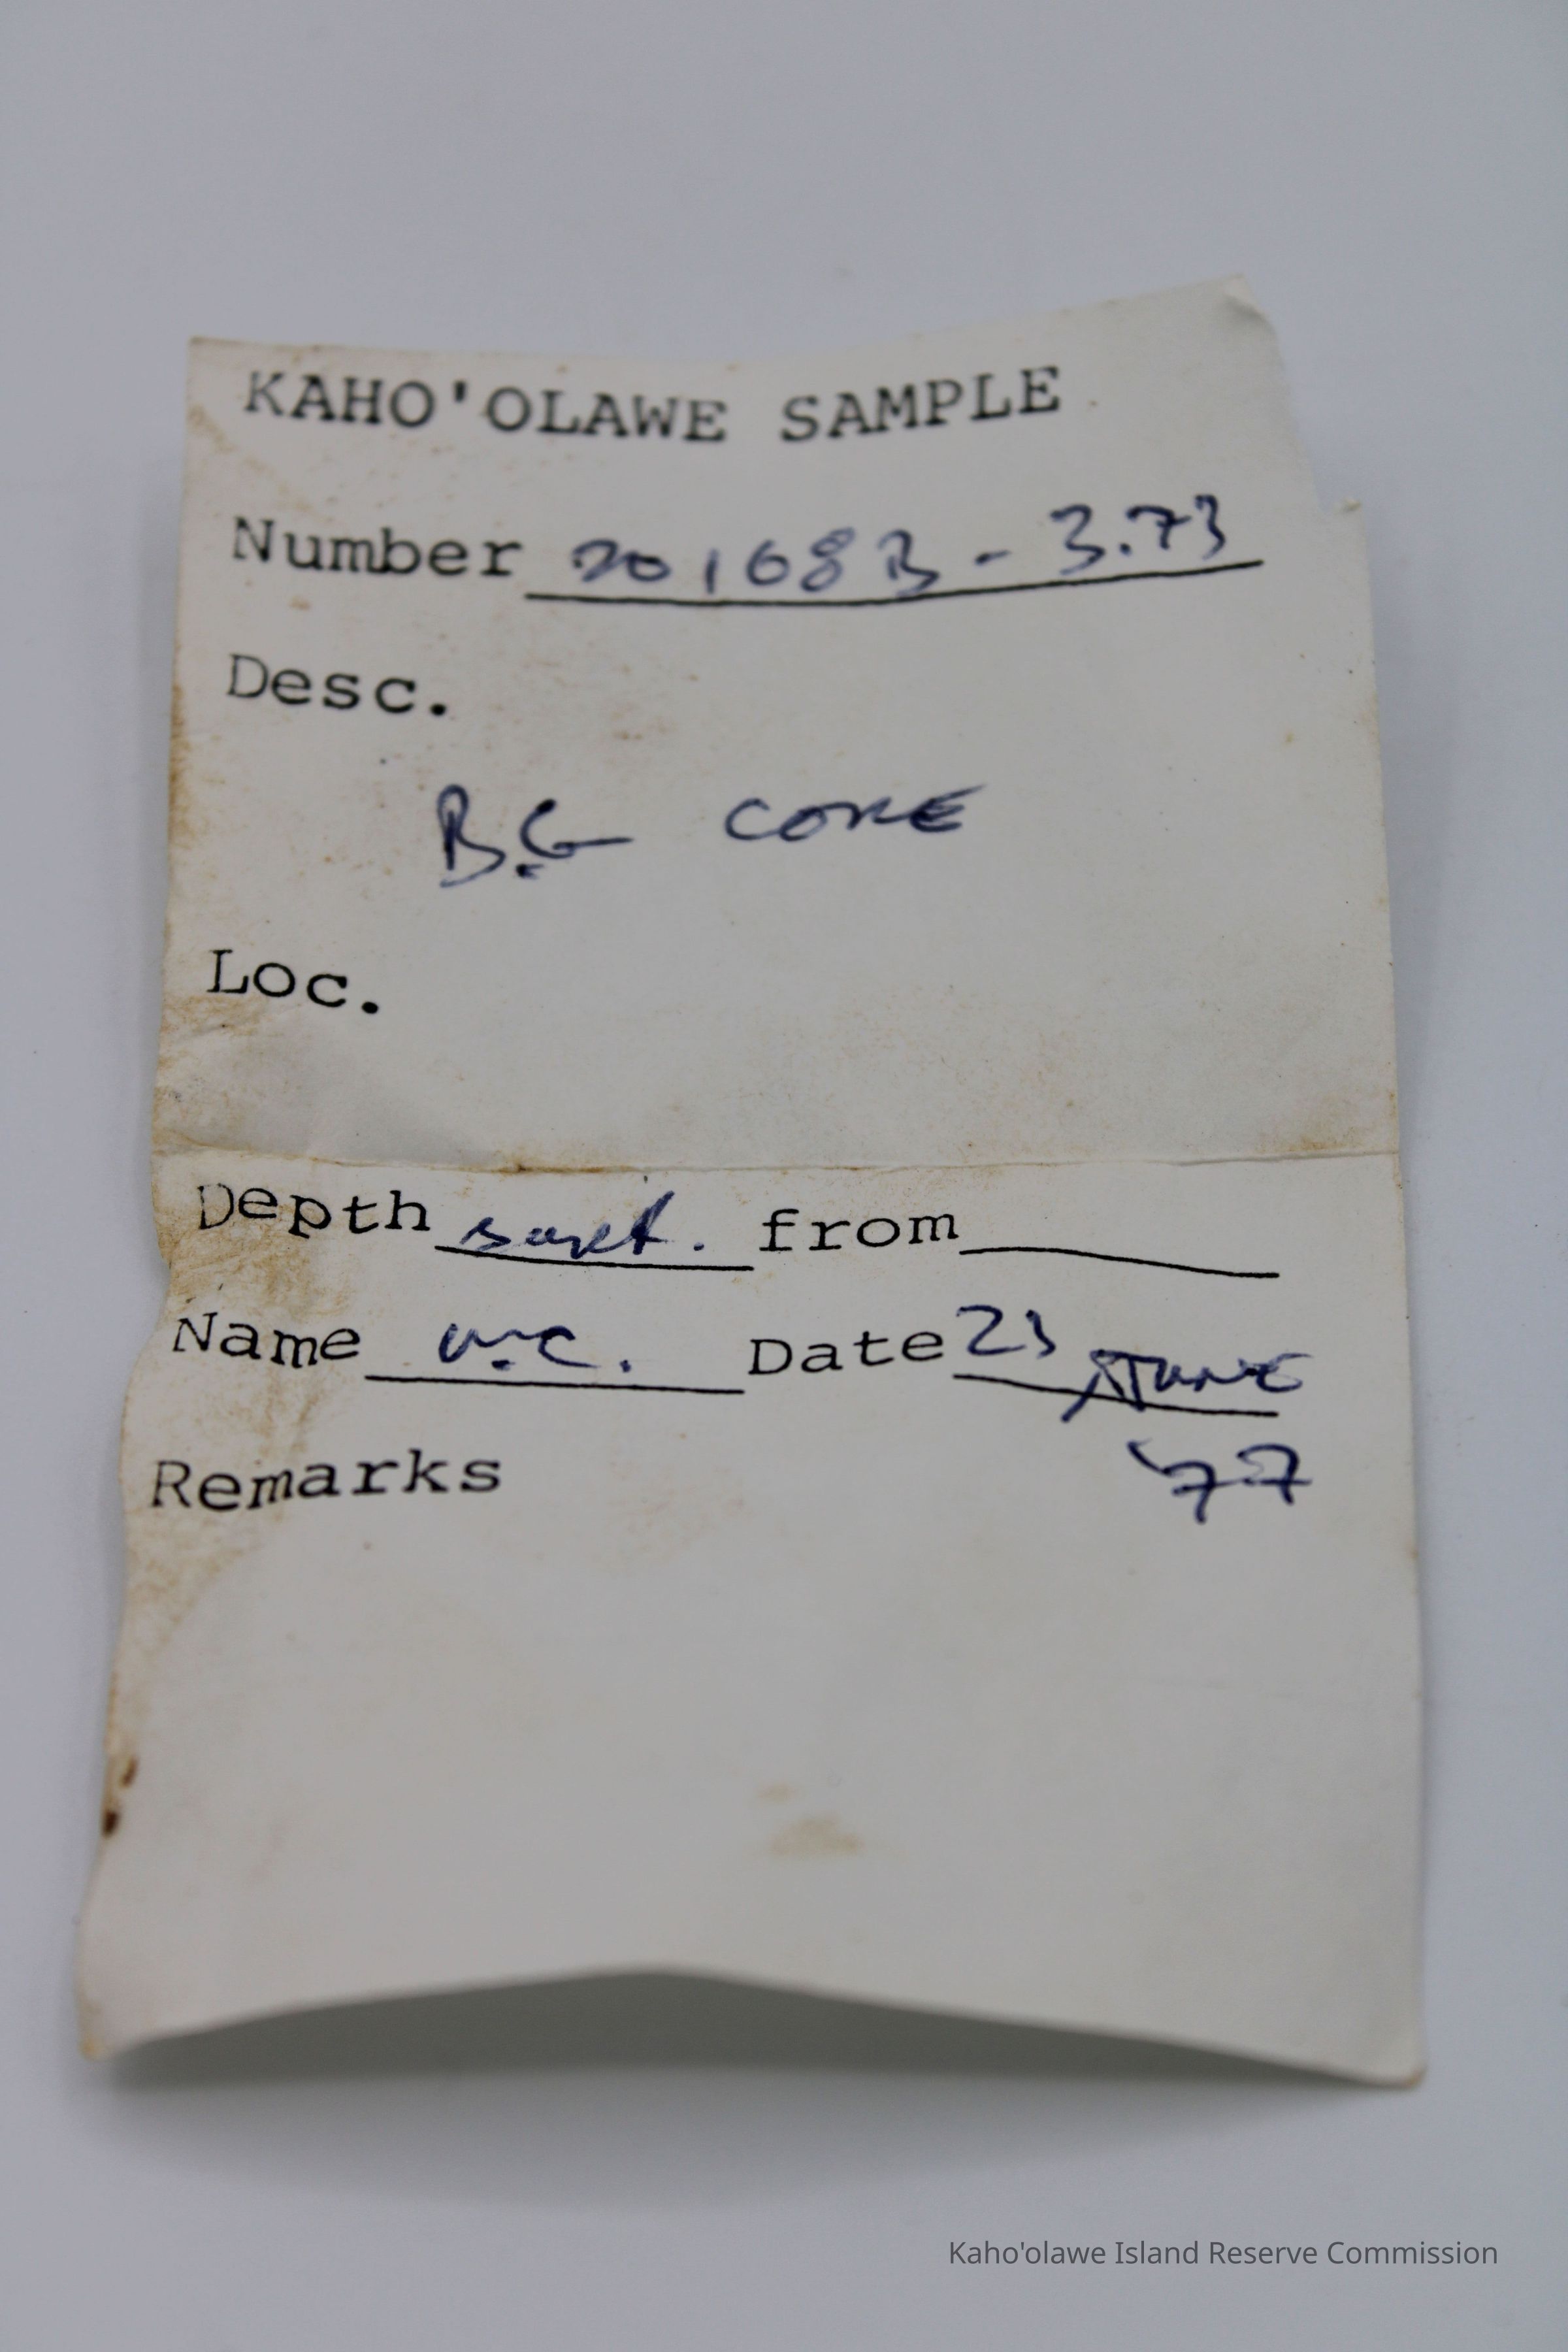 KAHO'OLAWE SAMPLE
Number 20168B - 3.73
Desc.
B.G CORE
Loc.
Depth surf. from
Name W.C. Date 23 JUNE
'77
Remarks
Kaho'olawe Island Reserve Commission